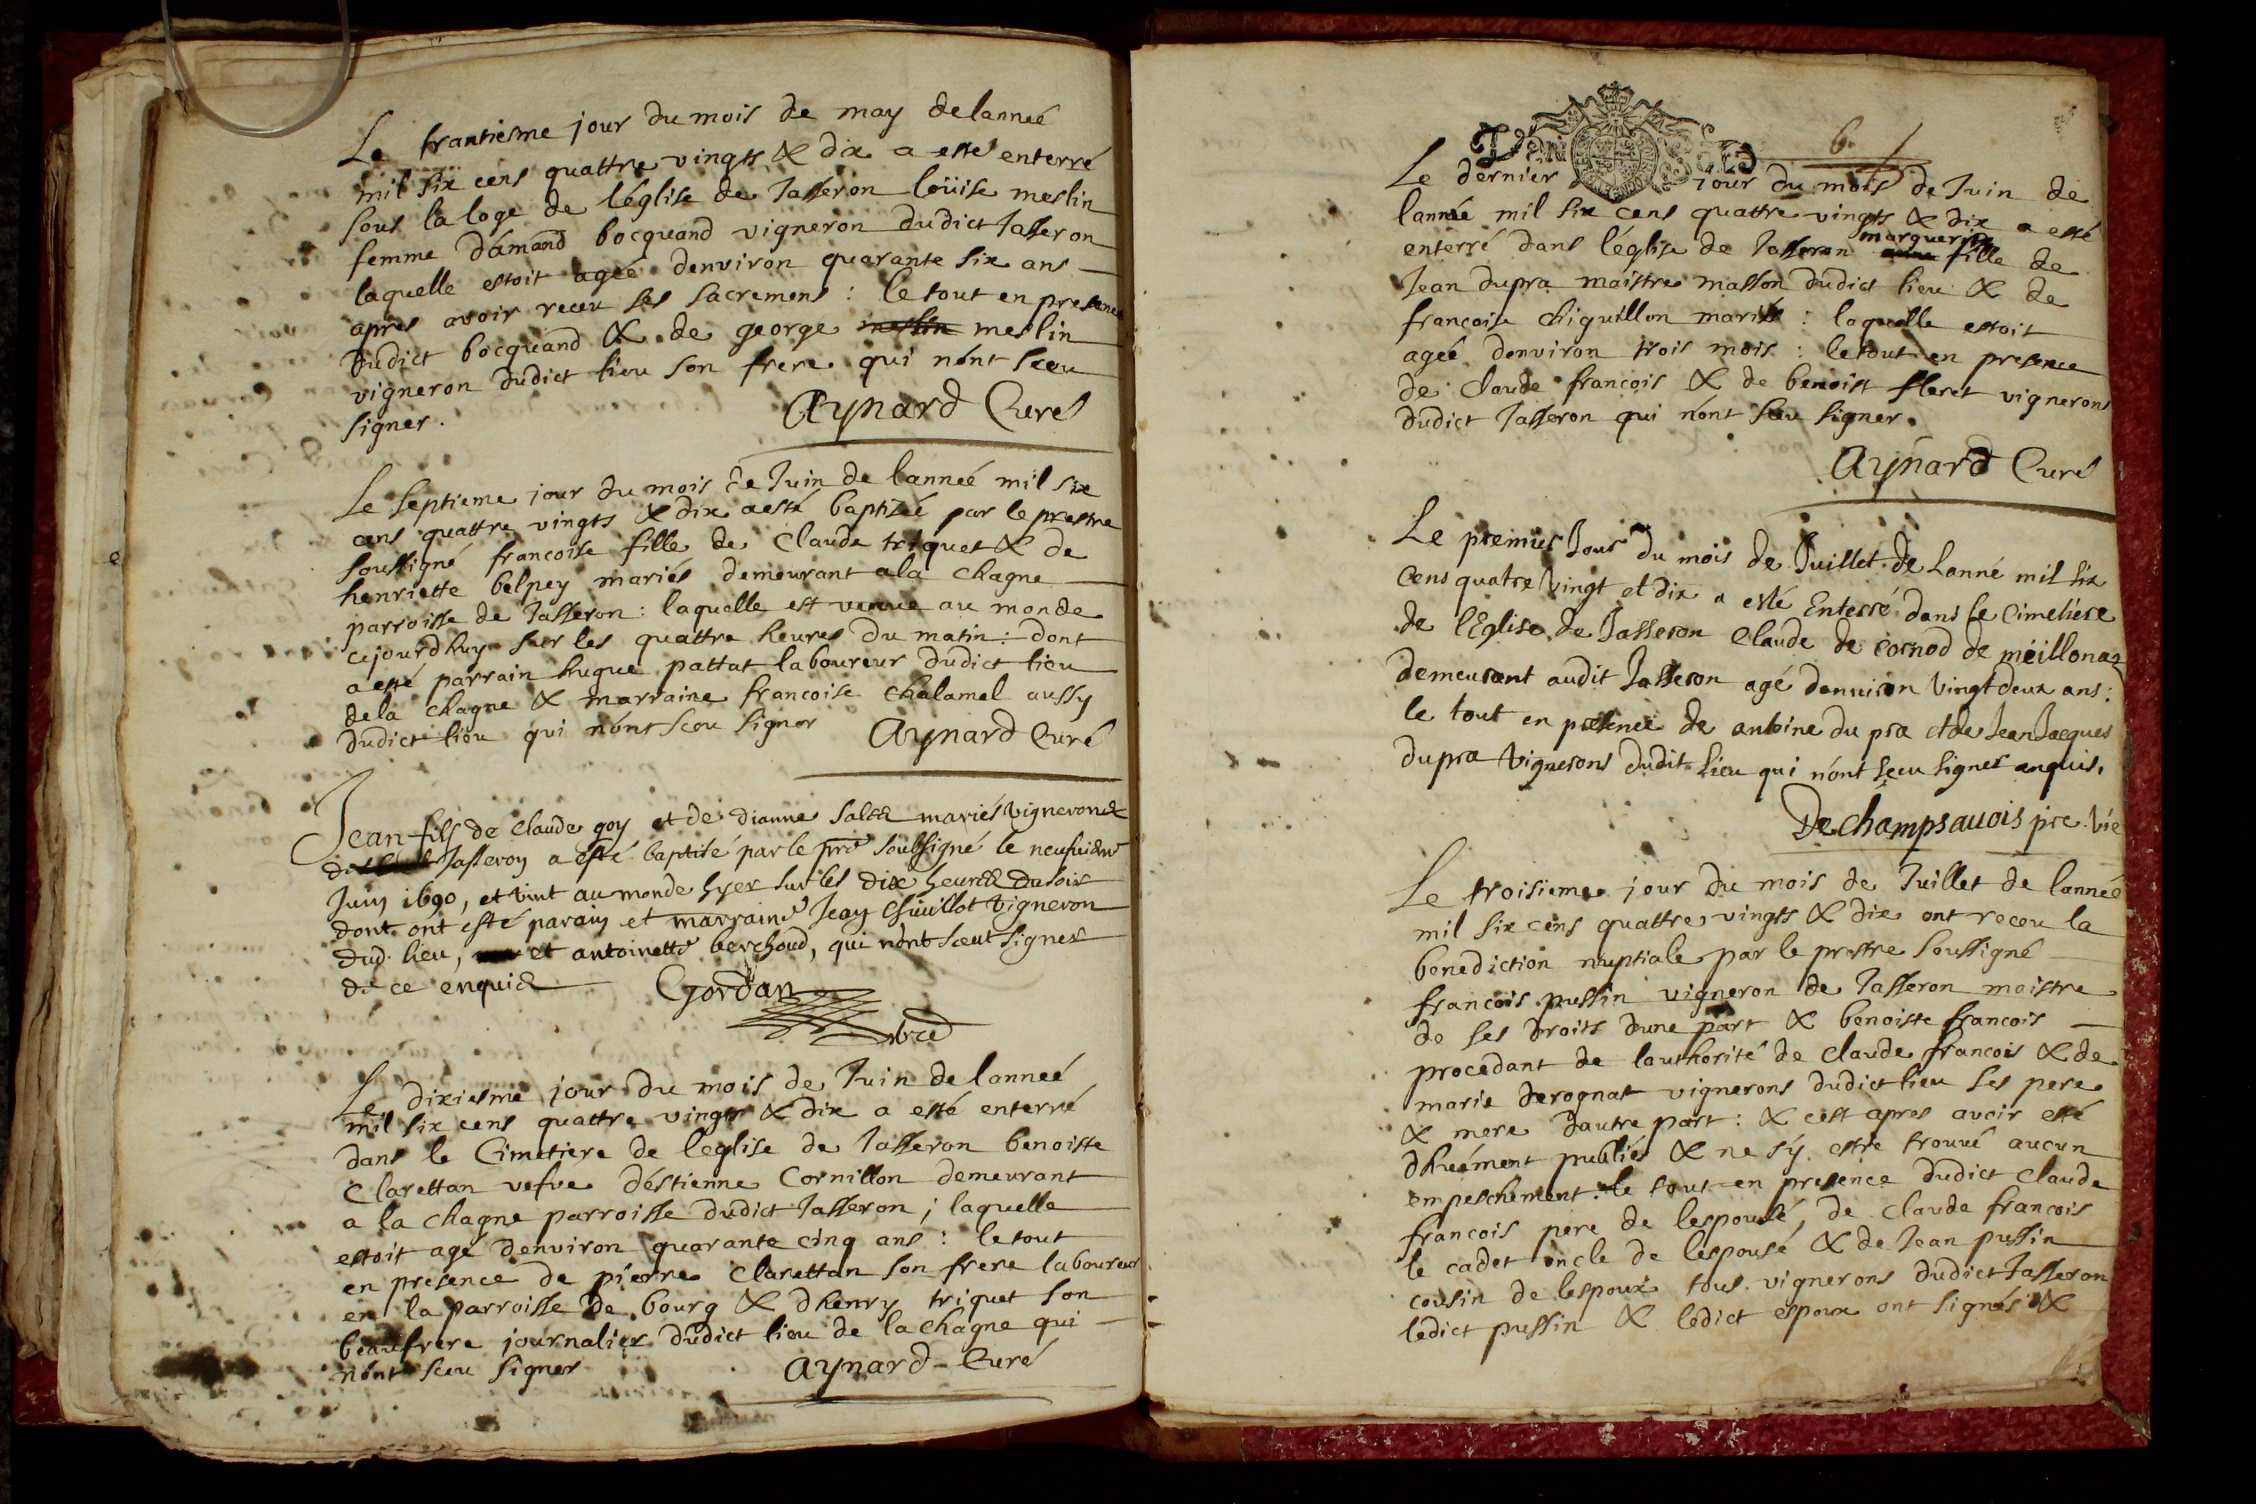 Le trantiesme jour du mois de may de lanneé
mil six cens quattre vingts & dix a esté enterré
sous la loge de léglise de Jasseron loüise meslin
femme dámand bocquand vigneron dudict Jasseron
laquelle estoit ageé denviron quarante six ans
apres avoir receu ses sacremens : le tout en presence
dudict bocquand & de george meslin meslin
vigneron dudict lieu son frere qui nónt sceu
signer.
Aynard Curé
Le septieme jour du mois de Juin de lanneé mil six
cens quattre vingts & dix a esté baptizeé par le prestre
soussigné francoise fille de Claude triquet & de
henriette belpey mariés demeurant a la chagne
parroisse de Jasseron : laquelle est venue au monde
cejourdhuy sur les quattre heures du matin : dont
a esté parrain hugue pattat laboureur dudict lieu
dela chagne & marraine francoise chalamel aussy
dudict lieu qui nónt sceu signer
Aynard Curé
Jean fils de claude goy et de dianne mariés vignerons
de Jasseron a esté baptisé par le pre soubsigné le neufuiesme
Juin 1690, et vint au monde hyer sur les dix heures du soir
dont ont esté parain et marraine Jean Chiuillot vigneron
dud. lieu, et antoinette berchoud, qui nónt sceut signer
de ce enquis
Gordan
Le dixiesme jour du mois de Juin de lanneé
mil six cens quattre vingts & dix a esté enterré
dans le Cimetiere de léglise de Jasseron benoiste
Clarettan vefve déstienne Cornillon demeurant
a la chagne parroisse dudict Jasseron ; laquelle
estoit agé denviron quarante cinq ans : le tout
en presence de pierre Clarettan son frere laboureur
en la parroisse de bourg & dhenry triquet son
beaufrere journalier dudict lieu de la chagne qui
nónt sceu signer
Aynard Curé
6.
Le dernier jour du mois de Juin de
lannée mil six cens quattre vingts & dix a esté
enterré dans léglise de Jasseron marguerite fille de
Jean dupra maistre masson dudict lieu & de
francoise chiquillon mariés : laquelle estoit
ageé denviron trois mois : le tout en presence
de Claude francois & de benoist floret vignerons
dudict Jasseron qui nónt sceu signer.
Aynard Curé
Le premier Jour du mois de Juillet de Lanné mil six
Cens quatre vingt et dix a esté Enterré dans le Cimetiere
de lEglise de Jasseron Claude de cornod de meillonaz
demeurant audit Jasseron agé denuiron vingt deux ans :
le tout en presence de antoine du pra et de Jean Jacques
dupra vignerons dudit lieu qui nónt sceu signer enquis.
De champsauois pre. vic
Le troisieme jour du mois de Juillet de lanneé
mil six cens quattre vingts & dix ont receu la
benediction nuptiale par le prestre soussigné
francois pussin vigneron de Jasseron maistre
de ses droits dune part & benoiste francois
procedant de lauthorité de claude francois & de
marie derognat vignerons dudict lieu ses pere
& mere dautre part : & cest apres avoir esté
dhuément publiés & ne sý estre trouvé aucun
empeschement : le tout en presence dudict Claude
francois pere de lespousé, de Claude francois
le cadet oncle de lespousé & de Jean pussin
cousin de lespoux tous vignerons dudict Jasseron
ledict pussin & ledict espoux ont signés &